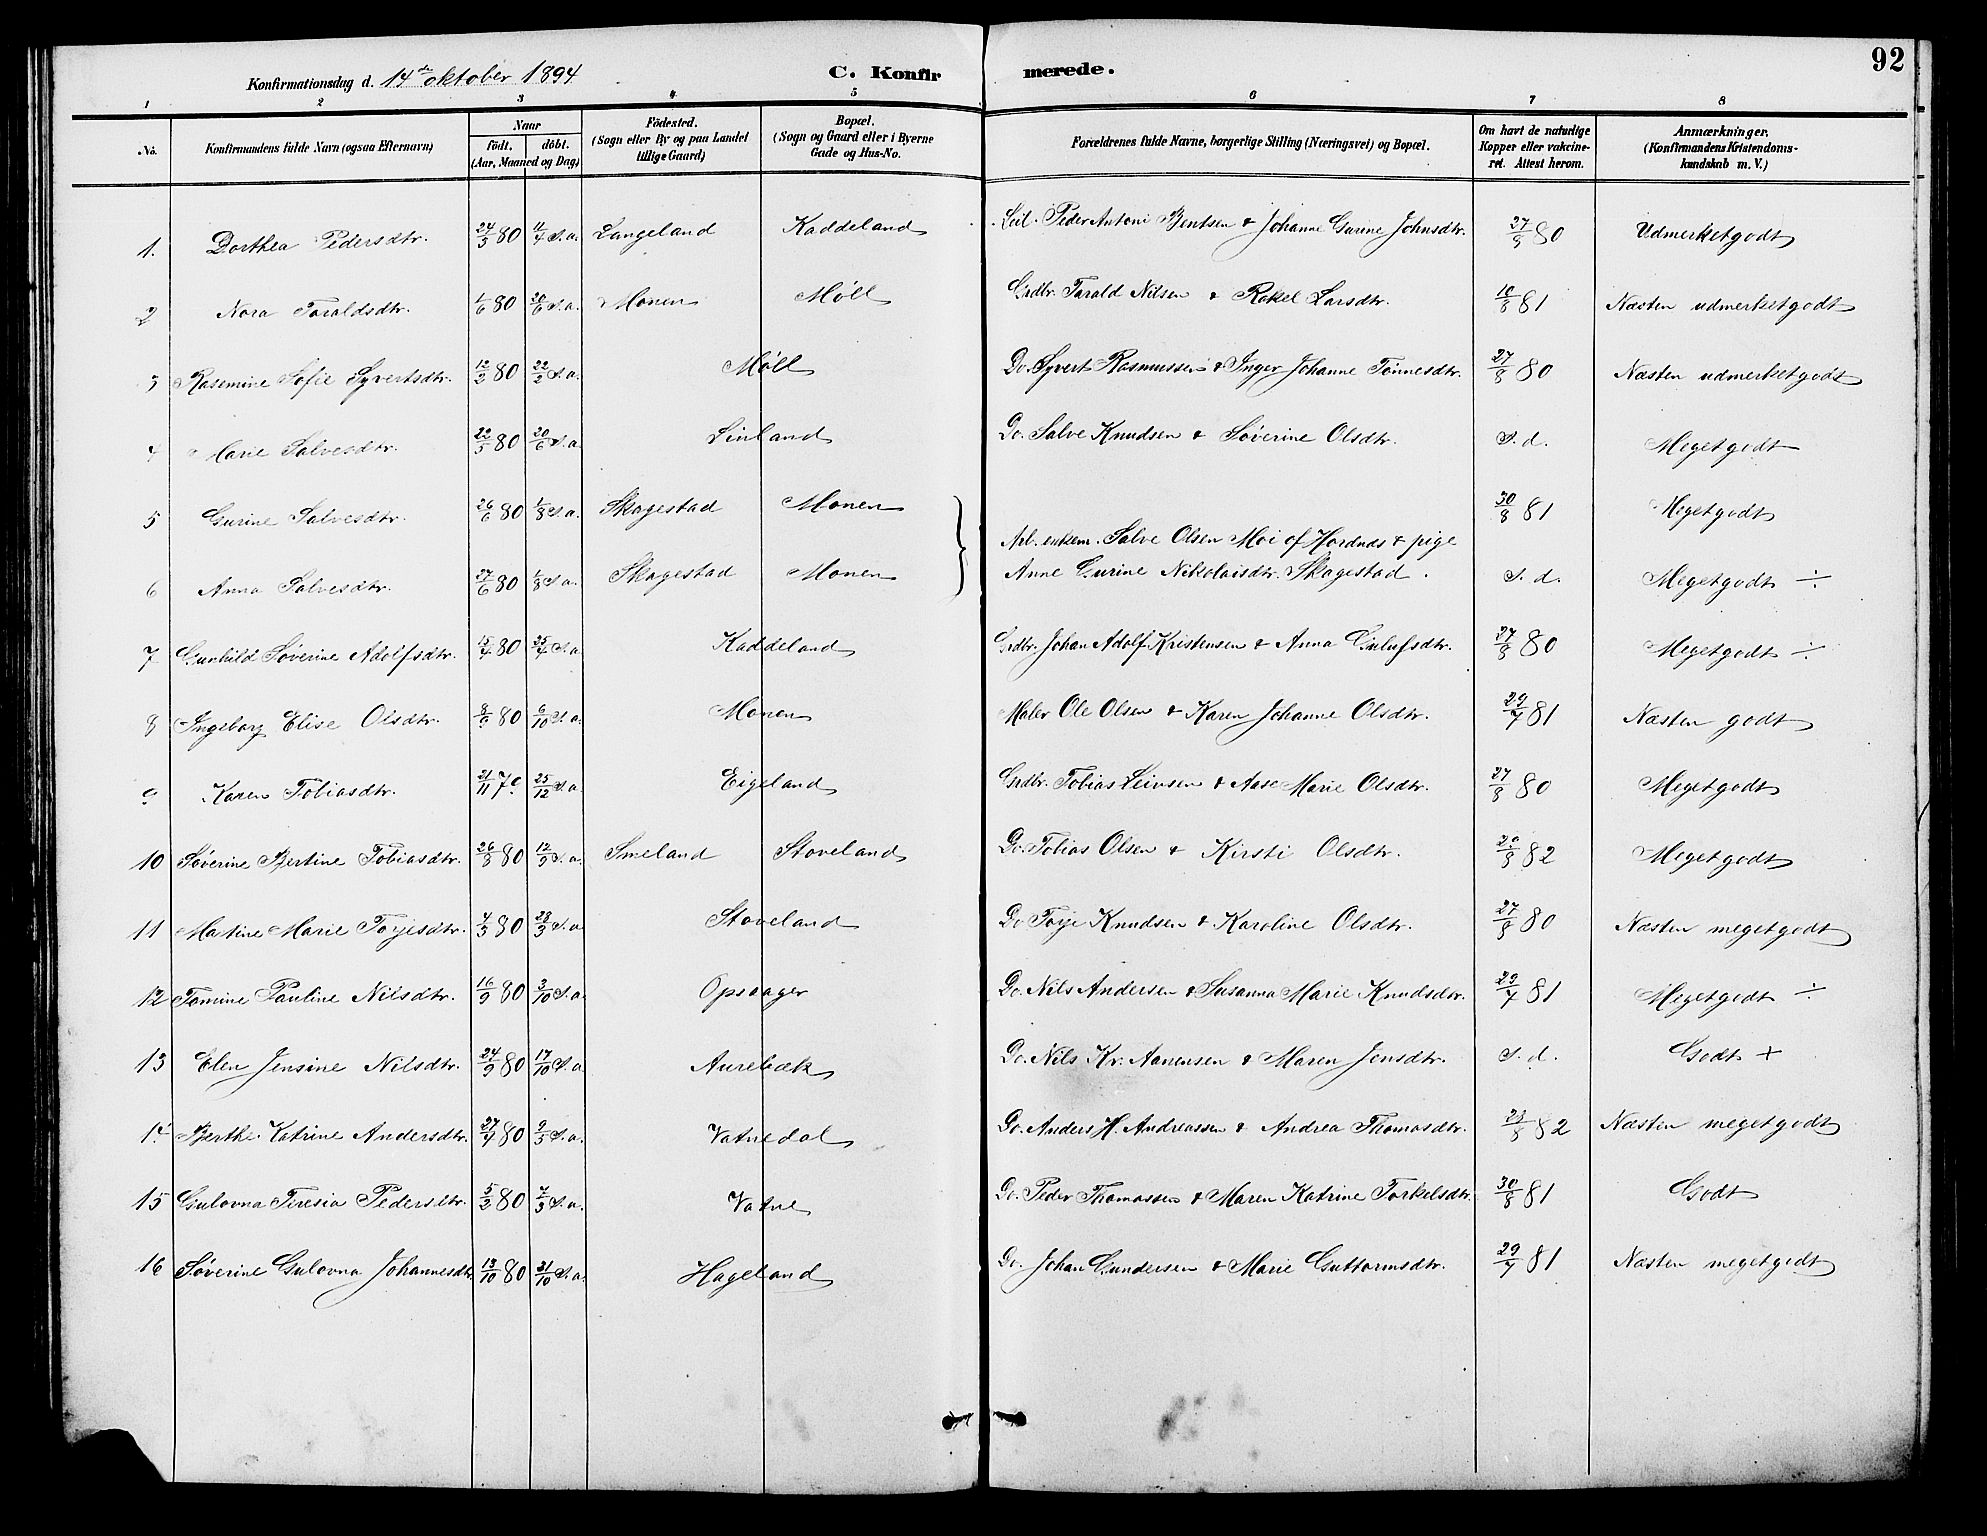 92
Konfirmationsdag d. 14de oktober 1894 C. Konfirmerede.
1 2 3 4 5 6 7 8
No. Konfirmandens fulde Navn (ogsaa Efternavn) Naar födt. döbt. (Aar, Maaned og Dag) Födested. (Sogn eller By og paa Landet tillige Gaard) Bopæl. (Sogn og Gaard eller i Byerne Gade og Hus-No. Forældrenes fulde Navne, borgerlige Stilling (Næringsvei) og Bopæl. Om havt de naturlige Kopper eller vakcineret. Attest herom. Anmærkninger. (Konfirmandens Kristendomskundskab m. V.)
1. Dorthea Pedersdtr. 24/3 80 11/4 s.a. Langeland Kaddeland Leil. Peder Antoni Bentsen & Johanne Gurine Johnsdtr. 27/8 80 Udmerketgodt
2 Nora Taraldsdtr. 1/6 80 20/6 s.a. Monen Møll Grdbr. Tarald Nilsen & Rakel Larsdtr. 10/8 81 Næsten udmerketgodt
3 Rasmine Sofie Syvertsdtr. 12/2 80 22/2 s.a. Møll Do. Syvert Rasmussen & Inger Johanne Tønnesdtr. 27/8 80 Næsten udmerketgodt
4 Marie Salvesdtr. 22/5 80 20/6 s.a. Linland Do. Salve Knudsen & Søverine Olsdtr. s. d. Megetgodt
5 Gurine Salvesdtr. 26/6 80 1/8 s.a. Skagestad Monen 30/8 81 Megetgodt
Arb. enkem. Salve Olsen Moi af Hordnæs & pige
6 Anna Salvesdtr. 27/6 80 1/8 s.a. Skagestad Monen Anne Gurine Nikolaisdtr. Skagestad. s. d. Megetgodt ÷
7 Gunhild Søverine Adolfsdtr. 15/4 80 25/4 s.a. Kaddeland Grdbr. Johan Adolf Kristensen & Anna Gulufsdtr. 27/8 80 Megetgodt ÷
8 Ingeborg Elise Olsdtr. 8/9 80 6/10 s.a. Monen Maler Ole Olsen & Karen Johanne Olsdtr. 29/7 81 Næsten godt
9 Karen Tobiasdtr. 21/11 79 25/12 s.a. Eigeland Grdbr. Tobias & Aase Marie Olsdtr. 27/8 80 Megetgodt
10 Søverine Bertine Tobiasdtr. 26/8 80 12/9 s.a. Smeland Stoveland Do. Tobias Olsen & Kirsti Olsdtr. 82 Megetgodt
11 Martine Marie Torjesdtr. 4/3 80 28/3 s.a. Stoveland Do. Torje Knudsen & Karoline Olsdtr. 27/8 80 Næsten megetgodt
12 Tomine Pauline Nilsdtr. 16/9 80 3/10 s.a. Opsaager Do. Nils Andersen & Susanna Marie Knudsdtr. 29/7 81 Megetgodt ÷
13 Elen Jensine Nilsdtr. 24/9 80 17/10 s.a. Aurebæk Do. Nils Kr. Aanensen & Maren Jensdtr. s. d. Godt +
14 Berthe Katrine Andersdtr. 27/4 80 9/5 s.a. Vatnedal Do. Anders H. Andreassen & Andrea Thomasdtr. 82 Næsten megetgodt
15 Gulovna Teresia Pedersdtr. 5/2 80 7/3 s.a. Vatne Do. Peder Thomassen & Maren Katrine Torkelsdtr. 30/8 81 Godt
16 Søverine Gulovna Johannesdtr. 13/10 80 31/10 s.a. Hageland Do. Johan Gundersen & Marie Guttormsdtr. 29/7 81 Næsten megetgodt